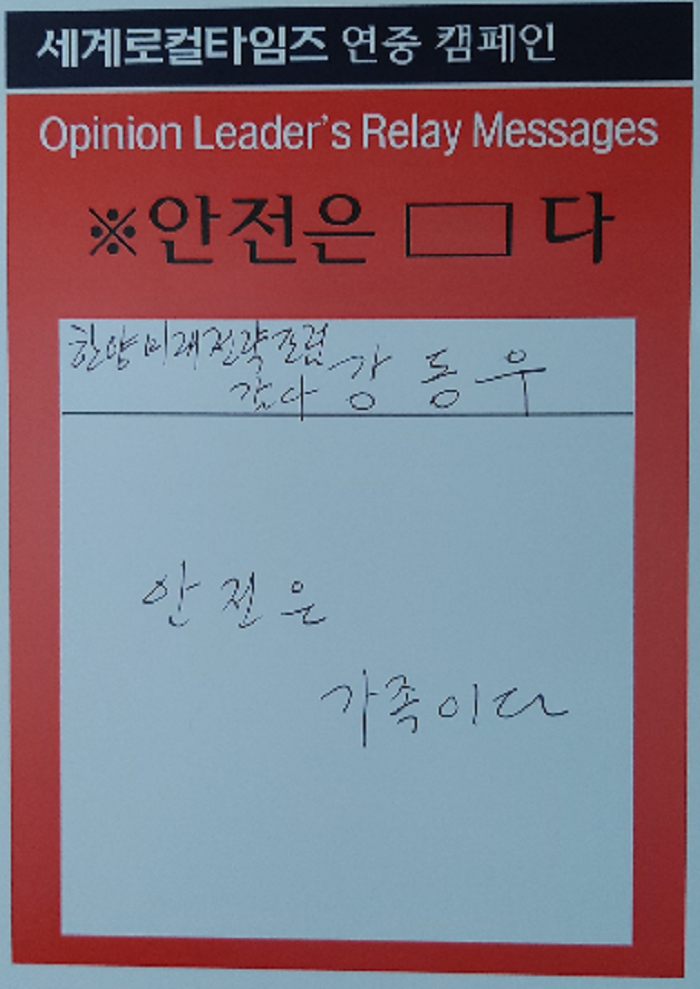 세계로컬타임즈 연중 캠페인
Opinion Leader's Relay Messages
※안전은 □ 다
한양미래전략포럼
감사 강동우
안전은
가족이다